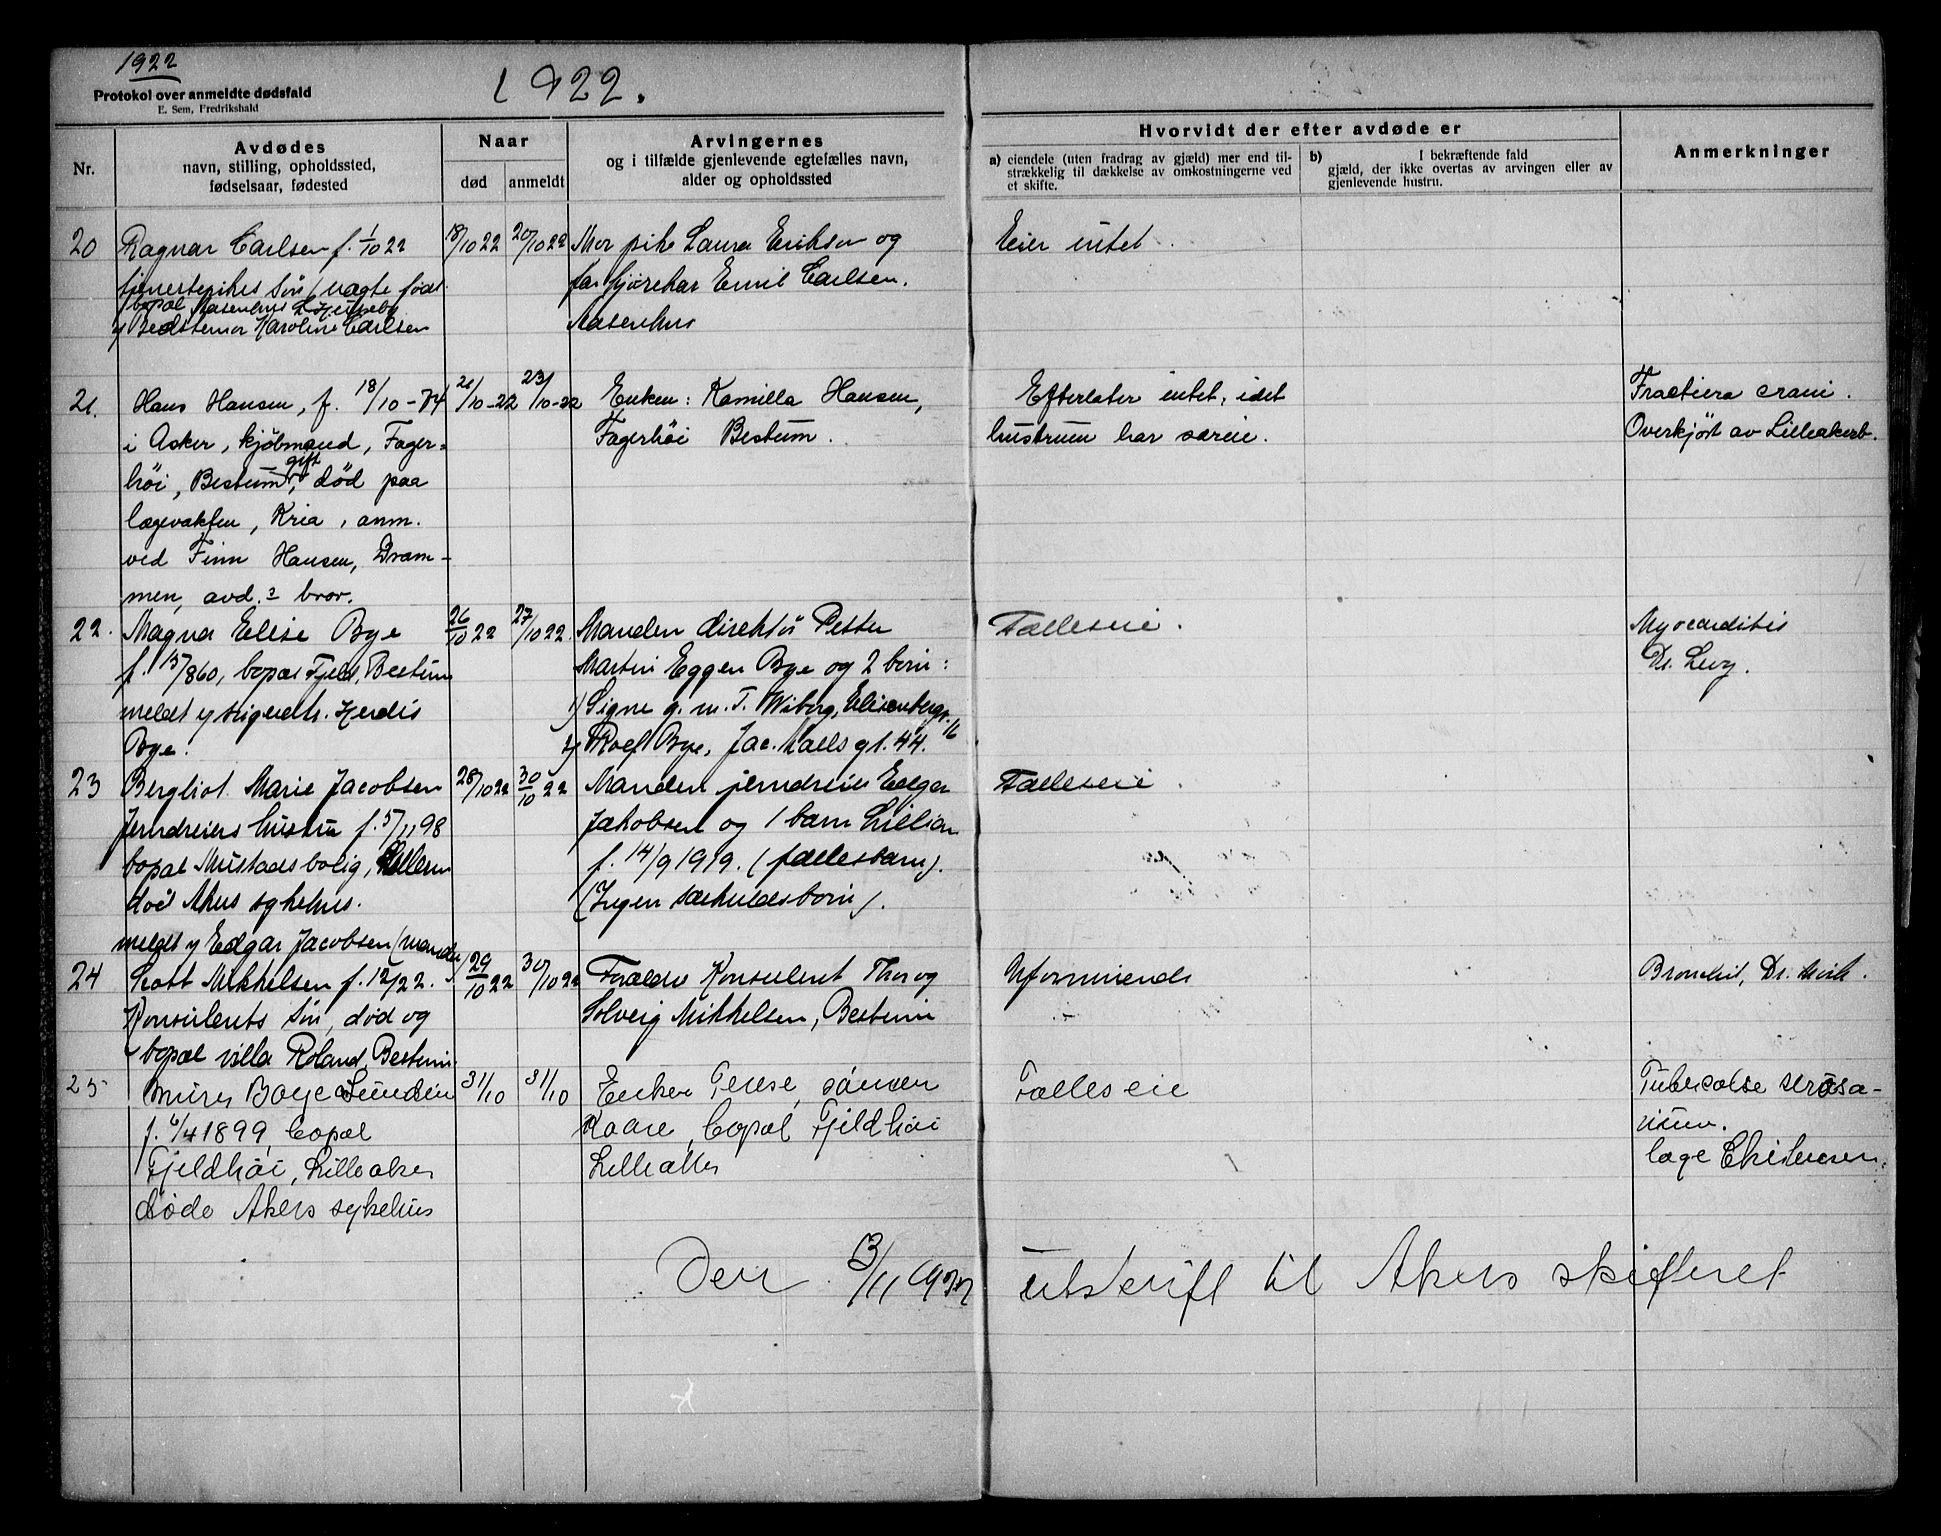 1922
Protokol over anmeldte dødsfald
E. Sem, Fredrikshald
1922.
Nr.
Avdødes
navn, stilling, opholdssted,
fødselsaar, fødested
Naar
død
anmeldt
Arvingernes
og i tilfælde gjenlevende egtefælles navn,
alder og opholdssted
Hvorvidt der efter avdøde er
a) eiendele (uten fradrag av gjæld) mer end til-
strækkelig til dækkelse av omkostningerne ved
et skifte.
b) I bekræftende fald
gjæld, der ikke overtas av arvingen eller av
gjenlevende hustru.
Anmerkninger
20
Ragnar Carlsen f. 1/10 22
søn uægte født
bopæl Aasenhus
Bedstemor Karoline Carlsen
18/10 22
20/10 22
Mor pike Laura Eriksen og
far Emil Carlsen.
Aasenhus
Eier intet
21.
Hans Hansen, f. 18/10-74
i Asker, kjøbmand, Fager=
høi, Bestum, gift, død paa
lægevakten, Kria, anm.
ved Finn Hansen, Dram-
men, avd.s bror.
21/10-22
23/10-22
Enken: Kamilla Hansen,
Fagerhøi Bestum.
Efterlater intet, idet
hustruen har særeie.
Fractura cranii.
Overkjørt av Lilleakerb.
22.
Magna Elise Bye
f. 15/7 860, bopæl Fjeld, Bestum
meldt Hjerdis
Bye.
26/10 22
27/10 22.
Manden direktør Petter
Martin Eggen Bye og 2 børn:
1) Signe g. m. T. Wiberg, Elisenbergv. 16
2) Rolf Bye, Jac. Aalls gt. 44.
Fælleseie.
Myocarditis
Dr. Levy.
23
Bergliot Marie Jacobsen
Jerndreiers hustru f. 5/11 98
bopæl Mustads bolig,
død Akers sykehus.
meldt Edgar Jacobsen (manden)
28/10 22
30/10 22
Manden jerndreier Edgar
Jakobsen og 1 barn Lillian
f. 14/9 1919. (fællesbarn).
(Ingen særkuldsbørn).
Fælleseie.
24
Scott Mikkelsen f. 12/2 22.
Konsulents søn, død og
bopæl villa Roland, Bestum.
29/10 22
30/10 22
Forældre Konsulent Thor og
Solveig Mikkelsen, Bestum
Uformuende
Bronchit, Dr.
25
Murer Boye Lundin
f. 6/4 1899, bopæl
Fjeldhøi, Lilleaker
døde Akers sykehus
31/10
31/10
Enken sønnen
Kaare, bopæl Fjeldhøi
Lilleaker
Fælleseie
Tubercolse
læge Christensen.
Den 3/11 1922 utskrift til Akers skifteret